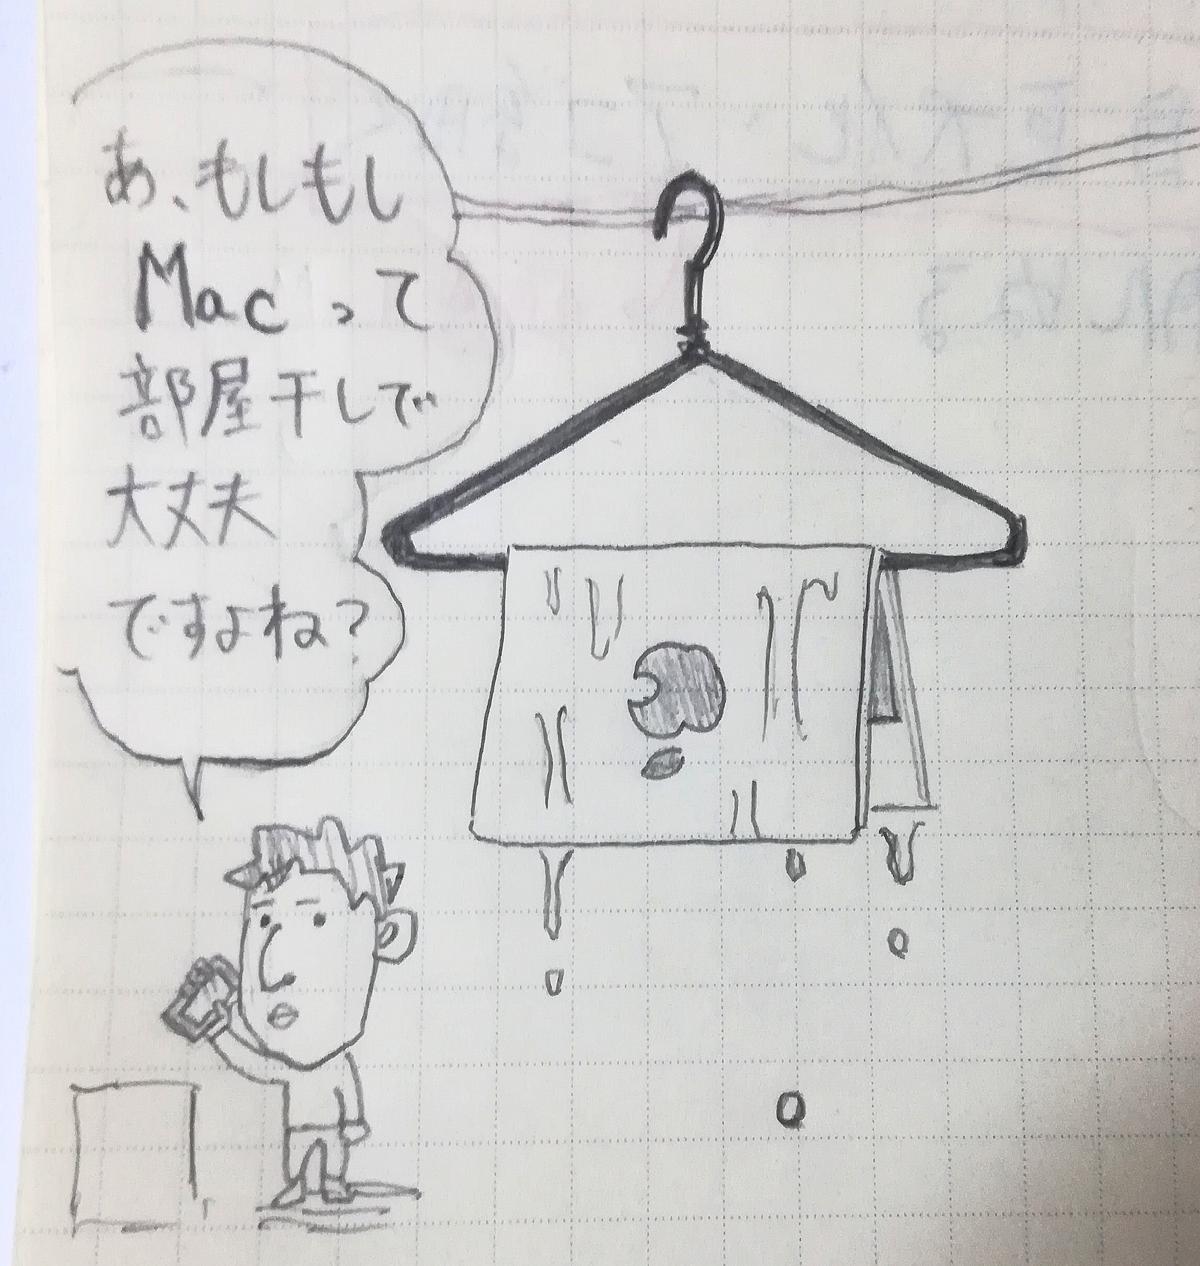 あ、もしもし
Macって
部屋干しで
大丈夫
ですよね?